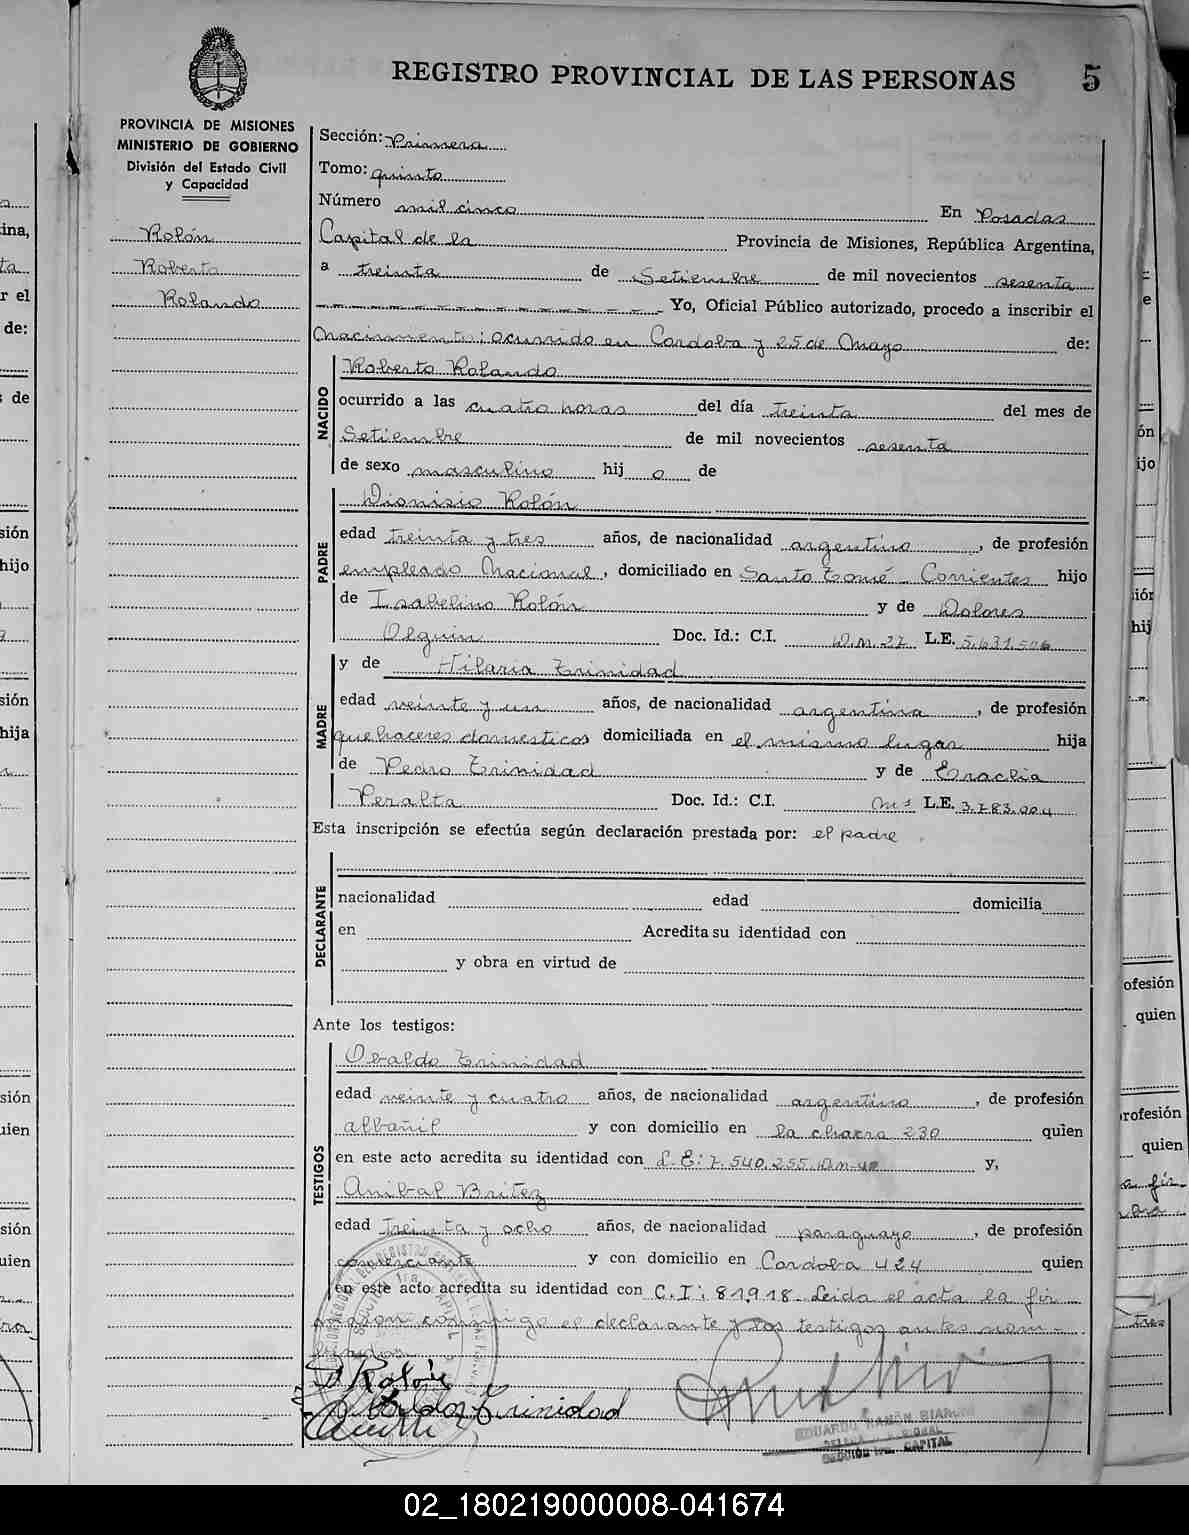 REGISTRO PROVINCIAL DE LAS PERSONAS 5
PROVINCIA DE MISIONES
MINISTERIO DE GOBIERNO
División del Estado Civil
y Capacidad
Rolón
Roberto
Rolando
Sección: Primera
Tomo: quinto
Número mil cinco En Posadas
Capital de la Provincia de Misiones, República Argentina,
a treinta de Setiembre de mil novecientos sesenta
Yo, Oficial Público autorizado, procedo a inscribir el
Nacimiento; ocurrido en Cordoba y 25 de Mayo de:
NACIDO
Roberto Rolando
ocurrido a las cuatro horas del día treinta del mes de
Setiembre de mil novecientos sesenta
de sexo masculino hijo de
PADRE
Dionisio Rolón
edad treinta y tres años, de nacionalidad argentino, de profesión
empleado Nacional, domiciliado en Santo Tomé - Corrientes hijo
de Isabelino Rolón y de Dolores
Olguin Doc. Id.: C.I. D.M. 27 L.E. 5.631.506
MADRE
y de Hilaria Trinidad
edad veinte y un años, de nacionalidad argentina, de profesión
quehaceres domesticos domiciliada en el mismo lugar hija
de Pedro Trinidad y de Eraclia
Peralta Doc. Id.: C.I. L.E. 3.783.004
Esta inscripción se efectúa según declaración prestada por: el padre
DECLARANTE
nacionalidad edad domicilia
en Acredita su identidad con
y obra en virtud de
Ante los testigos:
TESTIGOS
Obaldo Trinidad
edad veinte y cuatro años, de nacionalidad argentino, de profesión
albañil y con domicilio en la chacra 230 quien
en este acto acredita su identidad con L.E: 7.540.255. y,
Anibal Britez
edad treinta y ocho años, de nacionalidad paraguayo, de profesión
comerciante y con domicilio en Cordoba 424 quien
en este acto acredita su identidad con C.I: 81918. Leida el acta la fir
man conmigo el declarante y los testigos antes nom-
brados
D Rolón
Obaldo Trinidad
EDUARDO RAMÓN BIANCHI
SECCIÓN 1RA. CAPITAL
02_180219000008-041674